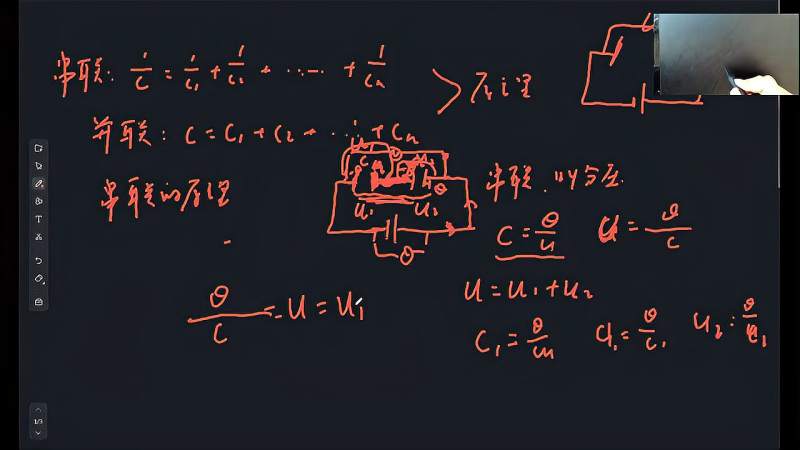 串联: 1/C = 1/C₁ + 1/C₂ + ······ + 1/Cₙ
> 原理
并联: C = C₁ + C₂ + ···· + Cₙ
串联的原理
U₁ U₂
串联. 时分压.
C = Q/U U = Q/C
U = U₁ + U₂
Q/C = U = U₁
C₁ = Q/U₁ U₁ = Q/C₁ U₂ :
T
1/3